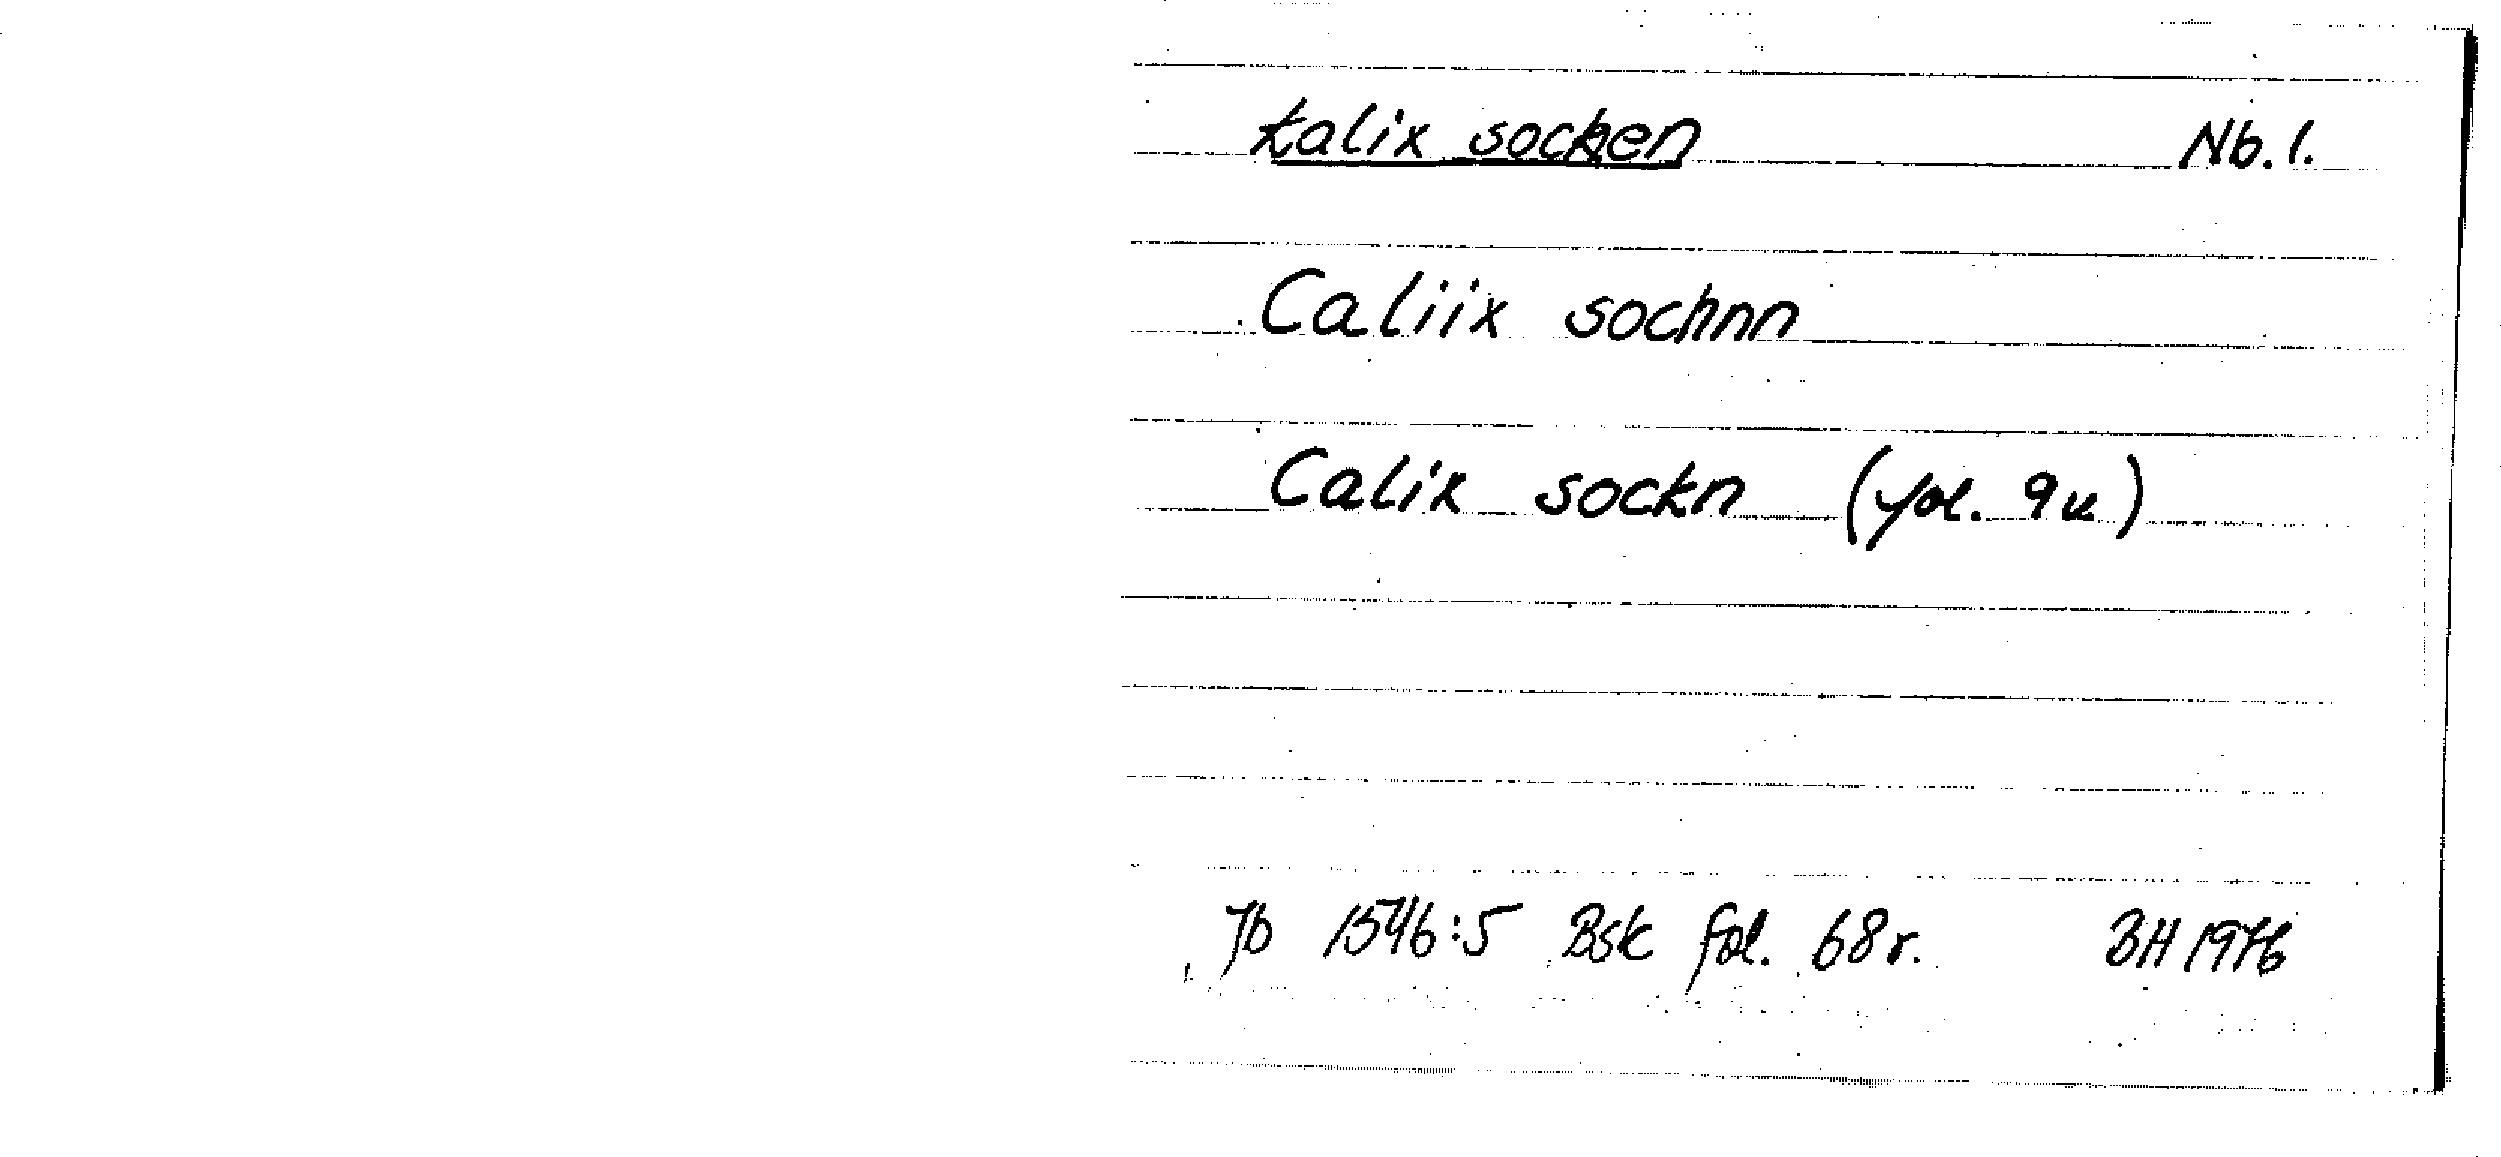 Kalix socken Nb. l.
Caliix sochnn
Calix sockn (fol. 9v)
Jb 1546:5 Bsk fol. 68r. BH 1976